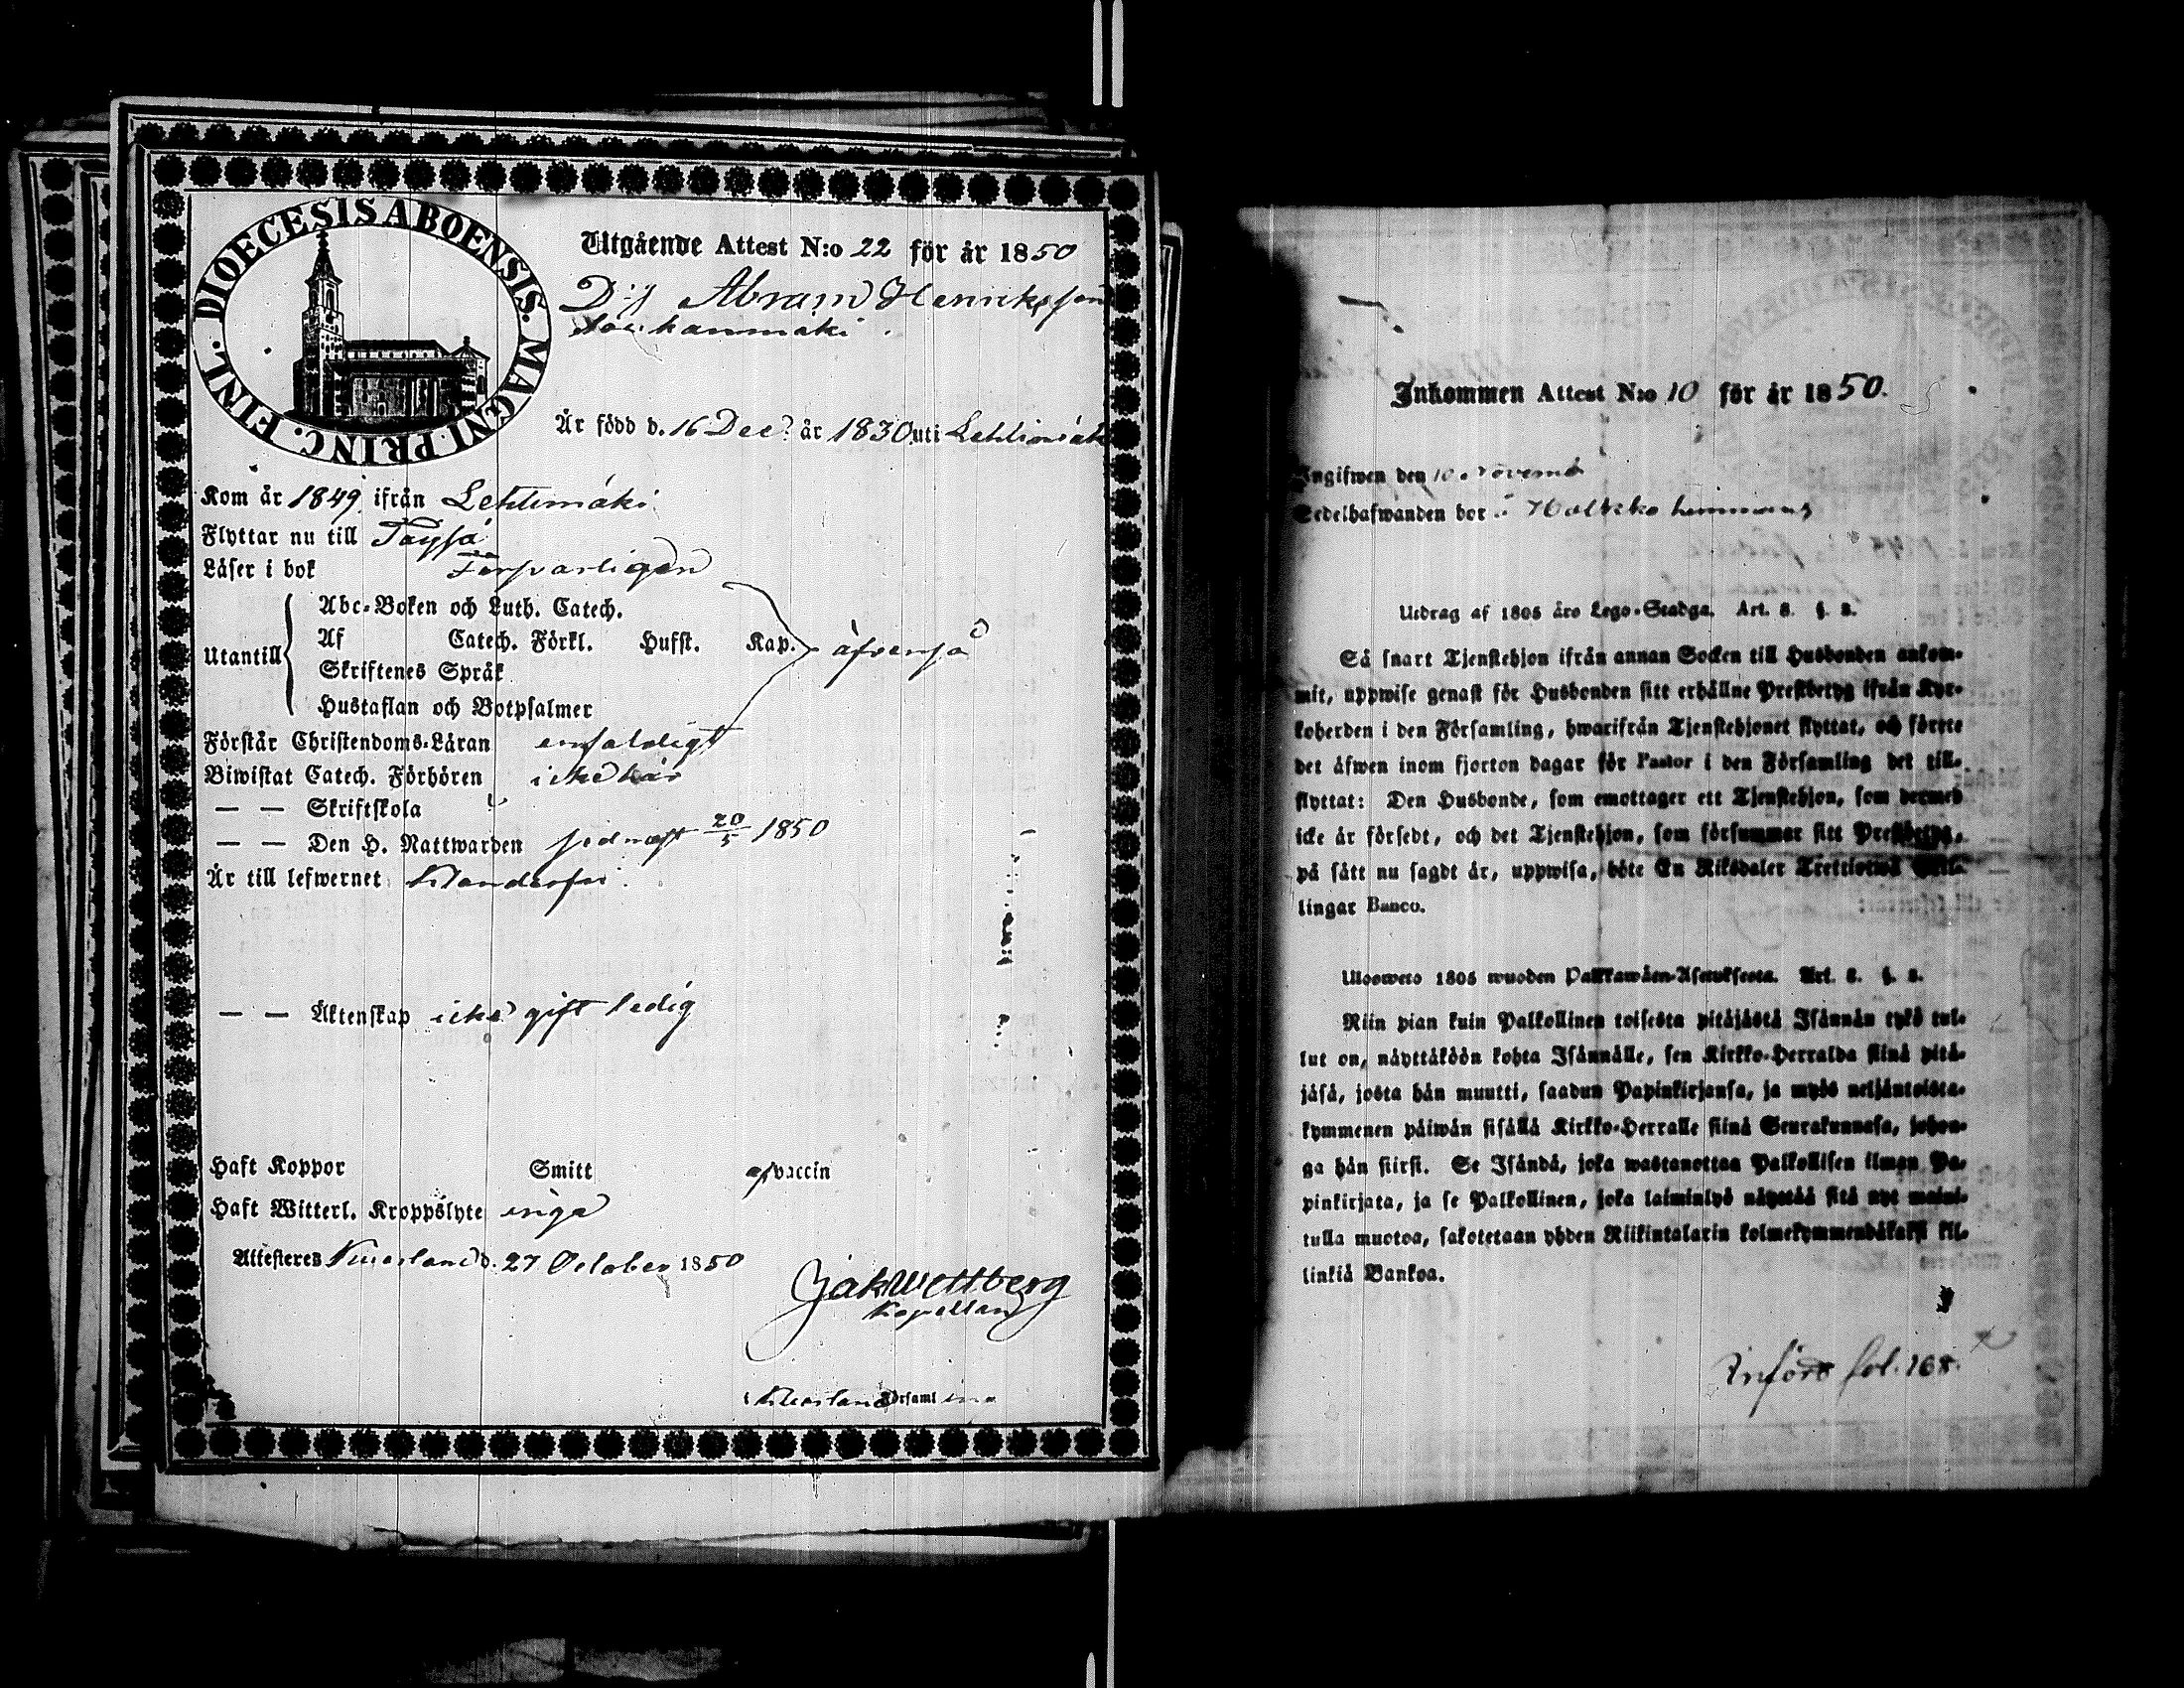 DIOECESIS ABOENSIS. MAGNI. PRINC. FINL.
Utgående Attest N:o 22 för år 1850
D:g Abram Henriksson
Är född d. 16 Dec. år 1830 uti Lehtimäki
Kom år 1849 ifrån Lehtimäki
Flyttar nu till Töysä
Läser i bok Försvarligen
Utantill
Abc-Boken och Luth. Catech.
Af Catech. Förkl. Hufst. Kap.
äfvenså
Skriftenes Språk
Hustaflan och Botpsalmer
Förstår Christendoms-Läran enfaldigt
Biwistat Catech. Förhören icke här
— — Skriftskola
— — Den H. Nattwarden sednast 20/5 1850
Är till lefwernet klanderfri.
— — Äktenskap icke gift ledig
Haft Koppor Smitt af vaccin
Haft Witterl. Kroppslyte inga
Attesteres Kuortane d. 27 October 1850
Jak Wettberg
Kapellan
i Kuortane Församl
Inkommen Attest N:o 10 för år 1850.
Ingifwen den 10 Novemb
Sedelhafwanden bor i Holkko hemman
Utdrag af 1805 års Lego-Stadga. Art. 8. §. 2.
Så snart Tjenstehjon ifrån annan Socken till Husbonden ankom-
mit, uppwise genast för Husbonden sitt erhållne Prestbetyg ifrån Kyr-
koherden i den Församling, hwarifrån Tjenstehjonet flyttat, och förete
det äfwen inom fjorton dagar för Pastor i den Församling det till-
flyttat: Den Husbonde, som emottager ett Tjenstehjon, som dermed
icke är försedt, och det Tjenstehjon, som försummar sitt Prestbetyg,
på sätt nu sagdt är, uppwisa, böte En Riksdaler Trettiotwå Skil-
lingar Banco.
Ulosweto 1805 wuoden Palkkawäen-Asetuksesta. Art. 8. §. 2.
Niin pian kuin Palkollinen toisesta pitäjästä Isännän tykö tul-
lut on, näyttäköön kohta Isännälle, sen Kirkko-Herralda siinä pitä-
jäsä, josta hän muutti, saadun Papinkirjansa, ja myös neljäntoista-
kymmenen päiwän sisällä Kirkko-Herralle siinä Seurakunnasa, johon-
ga hän siirsi. Se Isändä, joka wastanottaa Palkollisen ilman Pa-
pinkirjata, ja se Palkollinen, joka laiminlyö näyttää sitä nyt maini-
tulla muotoa, sakotetaan yhden Riikintalarin kolmekymmendäkaksi kil-
linkiä Bankoa.
Införd fol. 168.